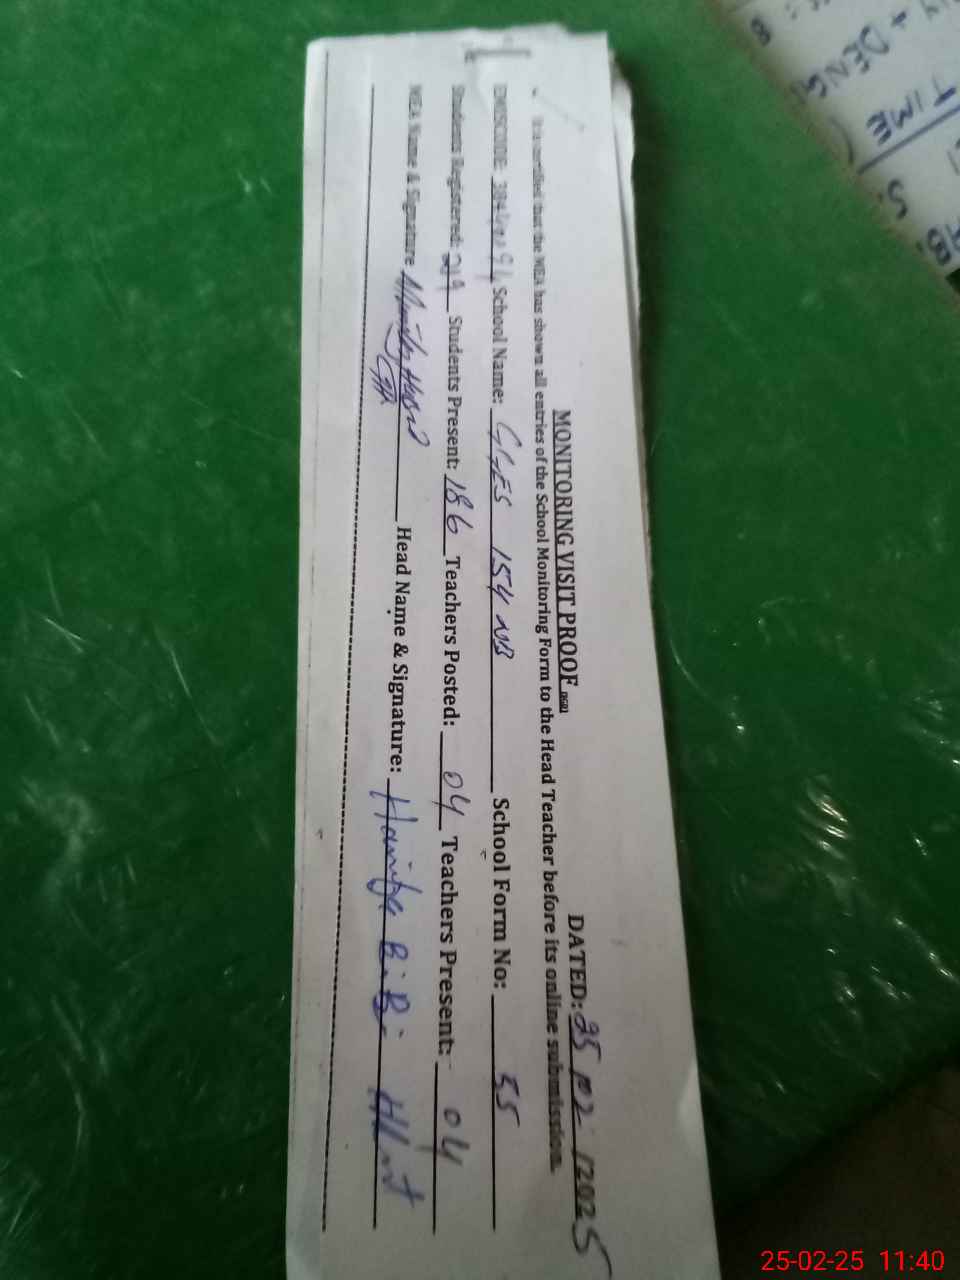 MONITORING VISIT PROOF DATED: 25/02/2025
It is certified that the MEA has shown all entries of the School Monitoring Form to the Head Teacher before its online submission.
EMISCODE School Name: GGES 154 NB School Form No: 55
Students Registered: 219 Students Present: 186 Teachers Posted: 04 Teachers Present: 04
MEA Name & Signature Head Name & Signature: Hanifa BiBi
+ DENG
TIME
25-02-25 11:40